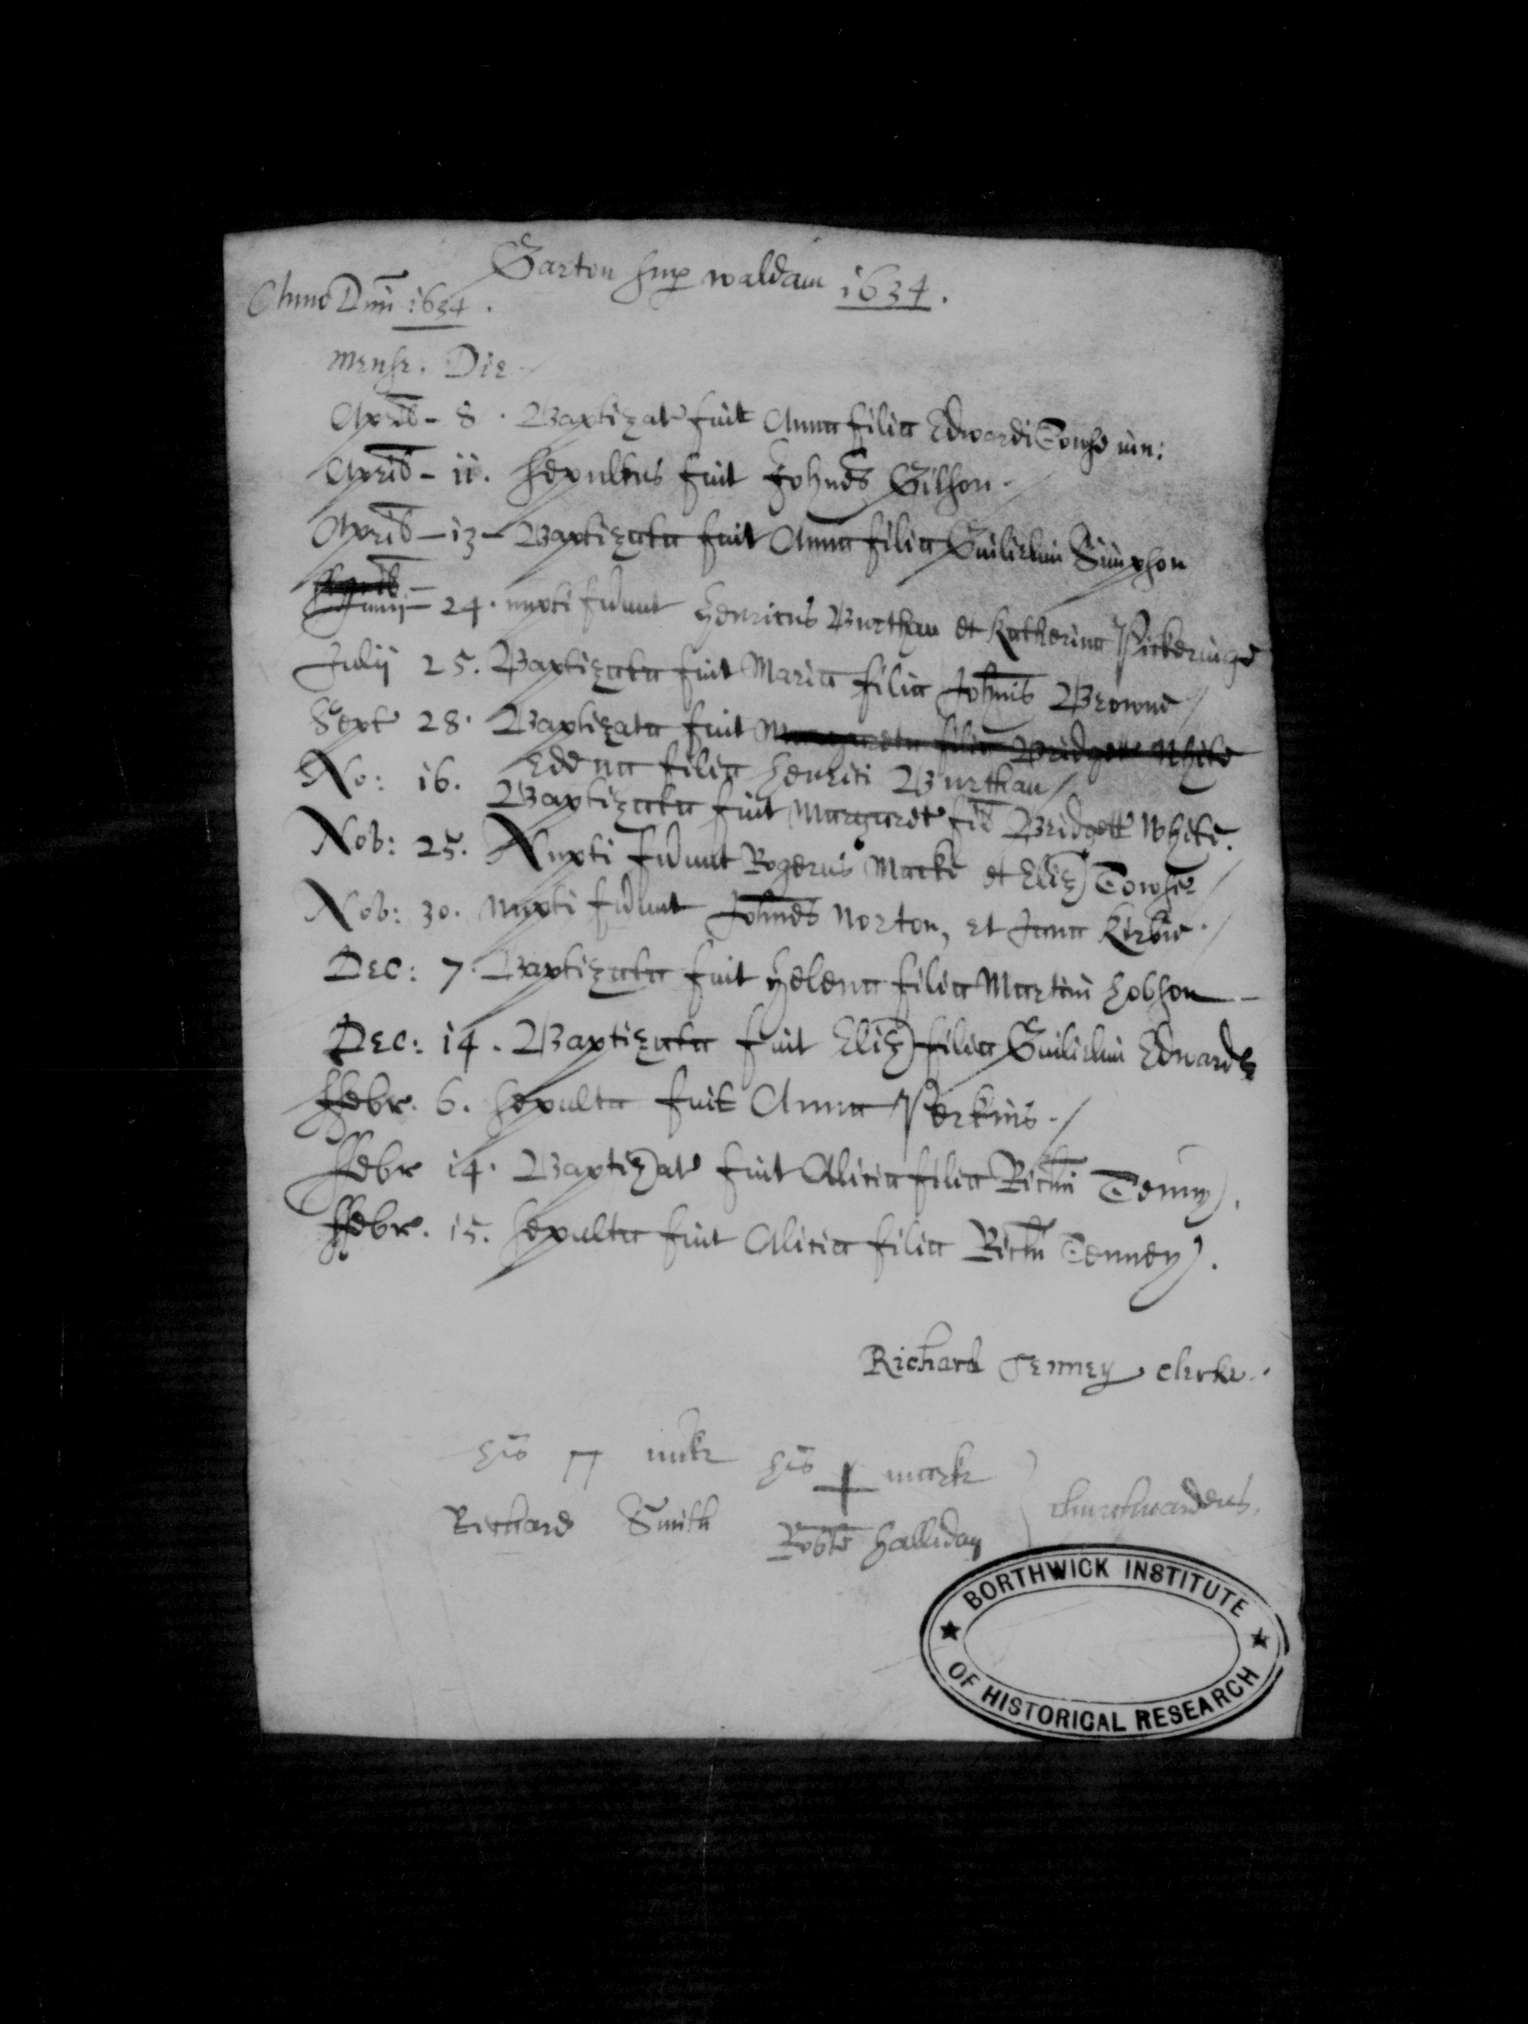 Garton sup waldam 1634.
Anno Dni 1634.
Mense. Die
April - 8. Baptizat fuit Anna filia Edwardi Towse iun:
April - 11. Sepultus fuit Johnes Gilson.
April - 13 - Baptizata fuit Anna filia Guilielmi Simpson
Junii - 24. nupti fuerunt Henricus Burthan et Katherina Pickeringe
Julii 25. Baptizata fuit Maria filia Johnis Browne
Sept 28. Baptizata fuit Margareta filia Bridgett White
Edena filia Henrici Burthan
No: 16. Baptizata fuit Margaret fil Bridgett White.
Nov: 25. Nupti fuerunt Rogerus Marke et Eliz Towse
Nov: 30. Nupti fuerunt Johnes Norton, et Jana Kirbie.
Dec: 7. Baptizata fuit Helena filia Martini Hobson
Dec: 14. Baptizata fuit Eliz filia Guilielmi Edwards
ffebr. 6. Sepulta fuit Anna Perkins.
ffebr 14. Baptizat fuit Alicia filia Richi Tenny.
ffebr. 15. Sepulta fuit Alicia filia Richi Tenney.
Richard Tenney Clerke.
his mke his + marke
Richard Smith Robte Halliday Churchwardens.
BORTHWICK INSTITUTE
OF HISTORICAL RESEARCH